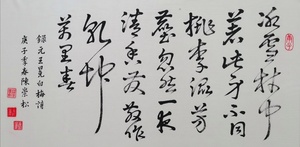 冰雪林中
著此身不同
桃李混芳
塵忽然一夜
清香發散作
乾坤
萬里春
錄元王冕白梅詩
庚子季春陳崇松